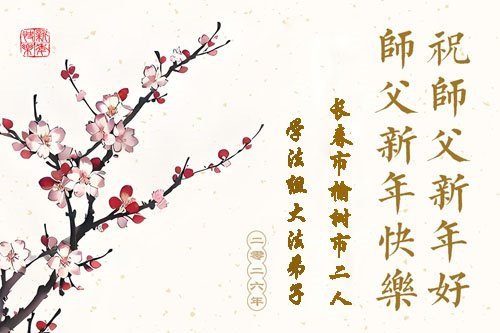 祝師父新年好
師父新年快樂
长春市榆树市二人
学法组大法弟子
二零二六年
新年快樂